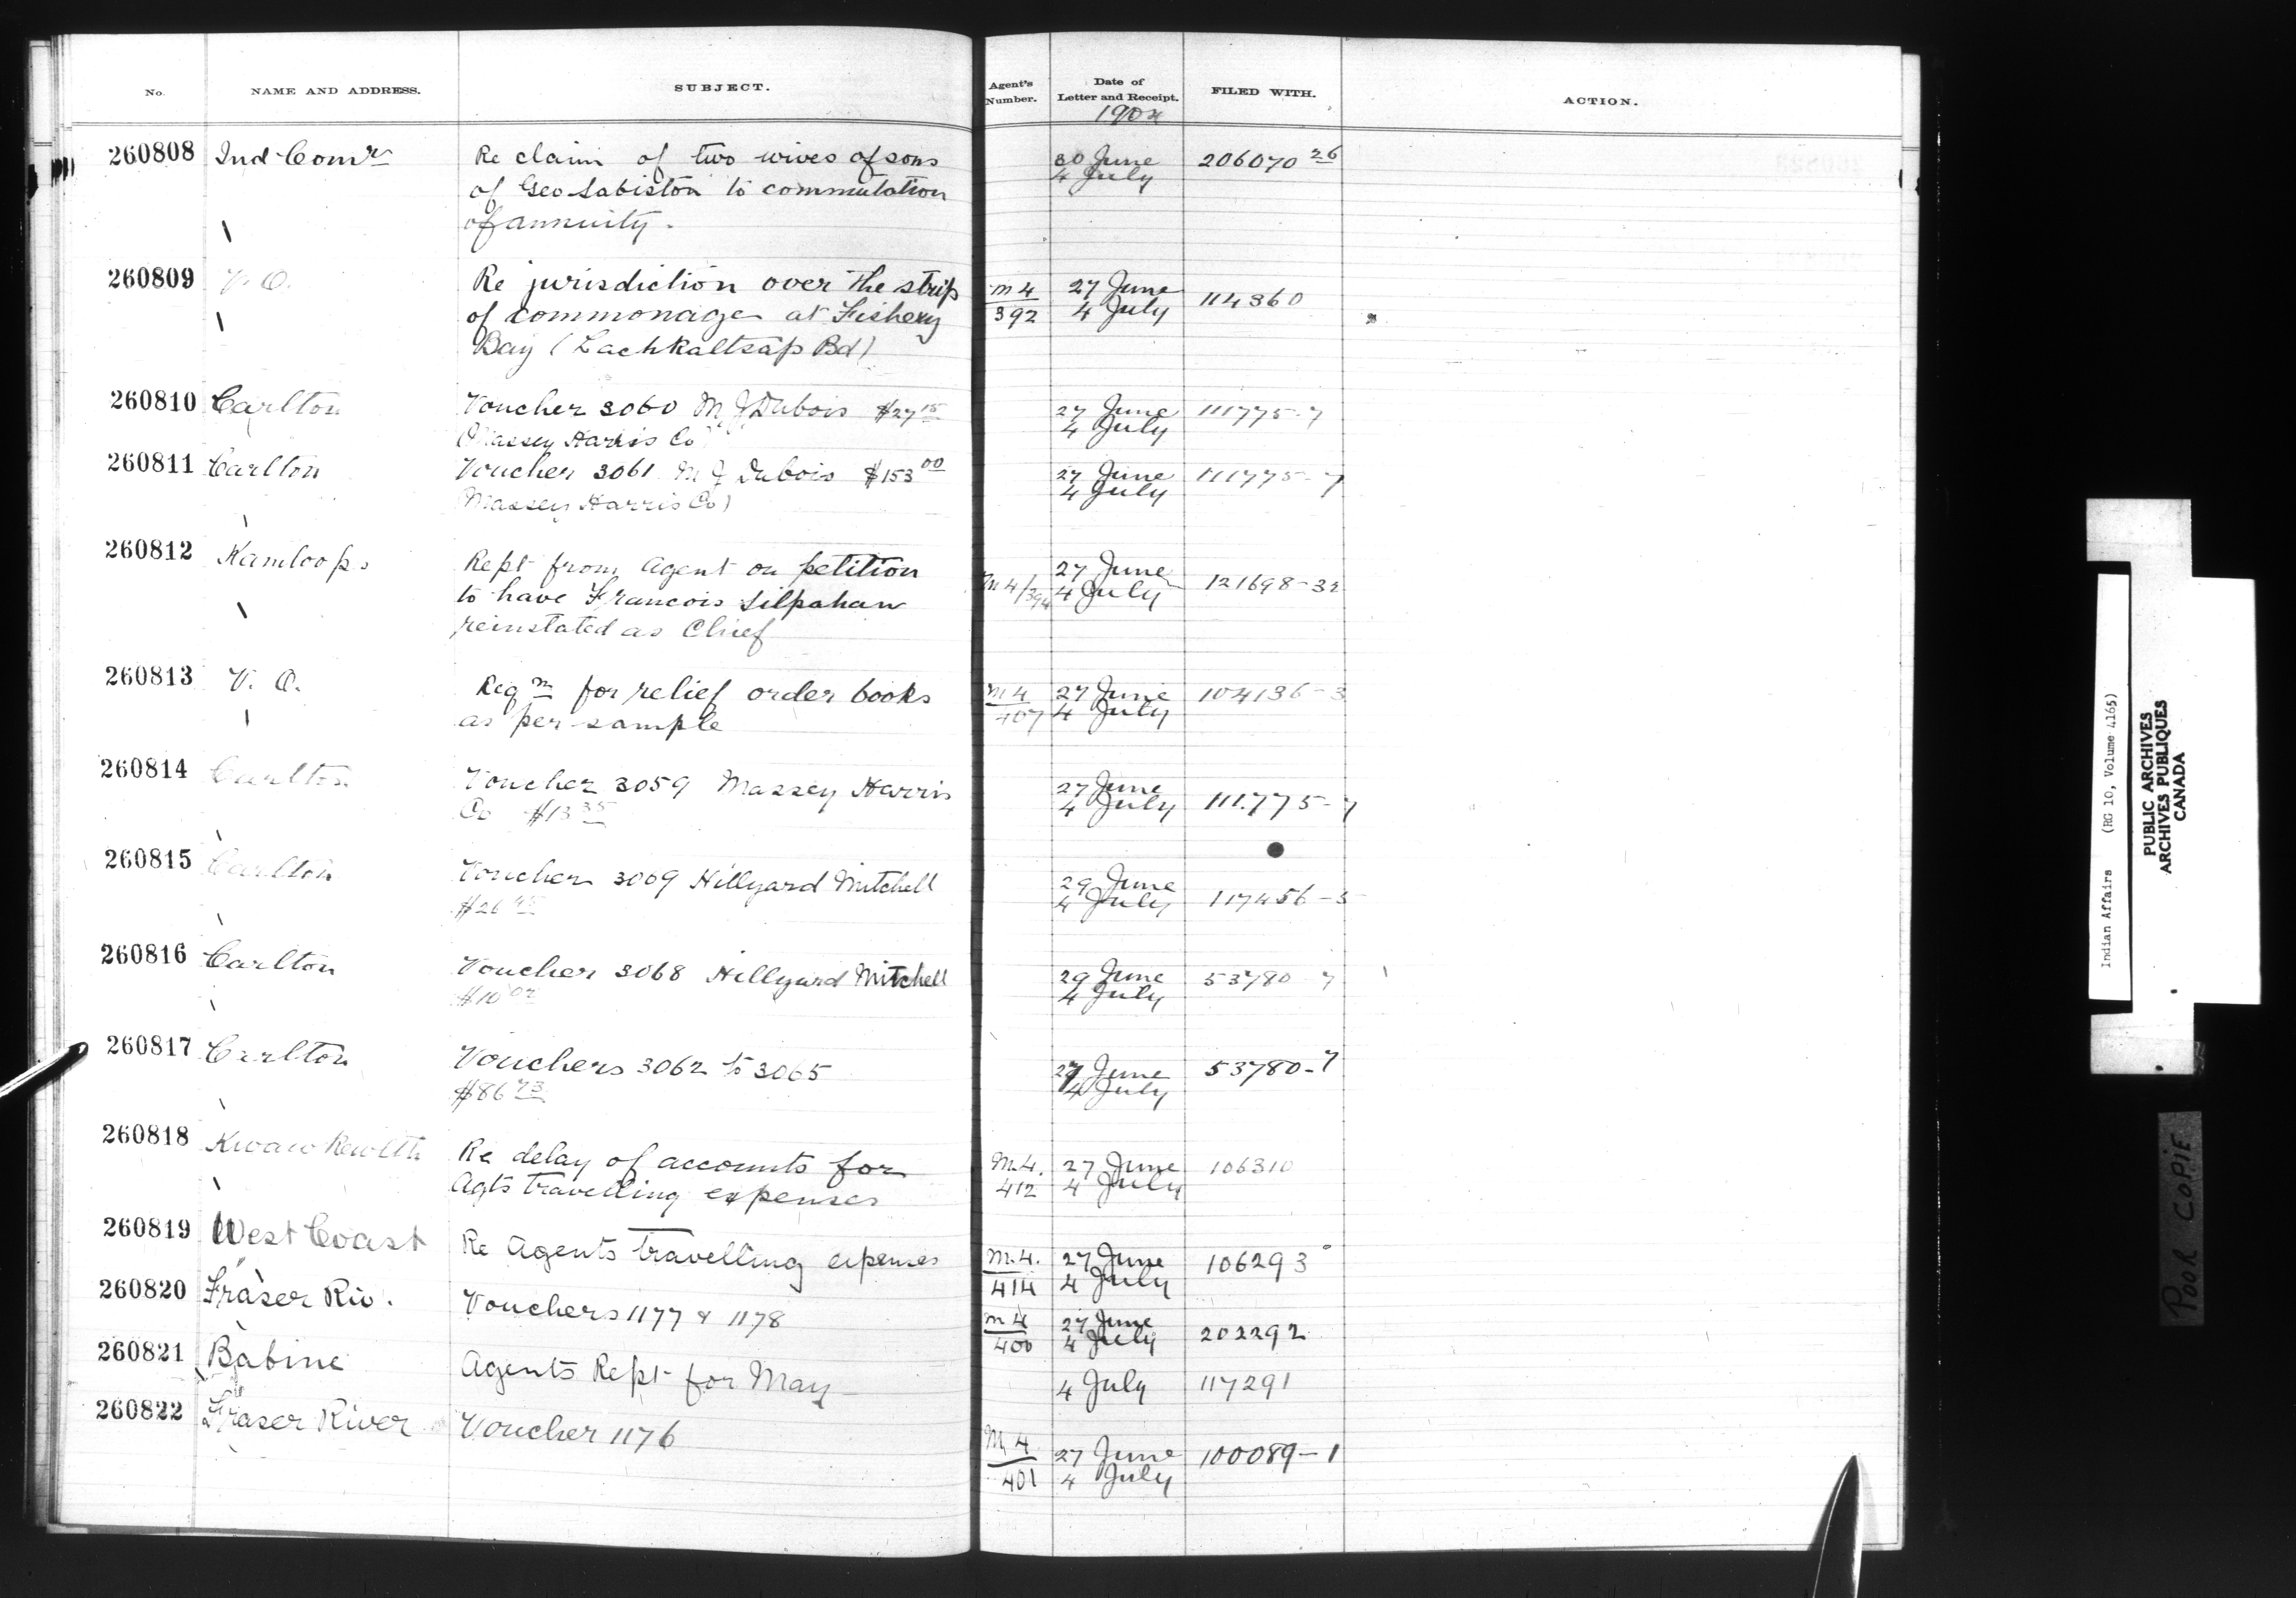 No. NAME AND ADDRESS. SUBJECT. Agent's Number. Date of Letter and Receipt. FILED WITH. ACTION.
260808 Ind Comr Re claim of two wives of sons 30 June 206070 26
of Geo Sabiston to commutation 4 July
of annuity.
260809 V. O. Re jurisdiction over the strip M4 27 June 114360
of commonage at Fishery 392 4 July
Bay (Lachkaltsap Bd)
260810 Carlton Voucher 3060 M J Dubois $27 15 27 June 111775-7
(Massey Harris Co) 4 July
260811 Carlton Voucher 3061 M J Dubois $153 00 27 June 111775-7
Massey Harris Co) 4 July
260812 Kamloops Rept from Agent on petition 27 June 121698-32
to have Francois Silpahan M4/394 4 July
reinstated as Chief
260813 V. O. Reqn for relief order books M4 27 June 104136-3
as per sample 407 4 July
260814 Carlton Voucher 3059 Massey Harris 27 June 111.775-7
Co $13 35 4 July
260815 Carlton Voucher 3009 Hillyard Mitchell 29 June 117456-5
4 July
260816 Carlton Voucher 3068 Hillyard Mitchell 29 June 53780-7
$10 02 4 July
260817 Carlton Vouchers 3062 to 3065 27 June 53780-7
$86 73 4 July
260818 Kwawkewlth Re delay of accounts for M.4. 27 June 106310
Agts travelling expenses 412 4 July
260819 West Coast Re Agents travelling expenses M.4. 27 June 106293
414 4 July
260820 Fraser Riv. Vouchers 1177 & 1178 M4 27 June 202292
400 4 July
260821 Babine Agents Rept for May 4 July 117291
260822 Fraser River Voucher 1176 M4 27 June 100089-1
401 4 July
Indian Affairs (RG 10, Volume 4165)
PUBLIC ARCHIVES
ARCHIVES PUBLIQUES
CANADA
POOR COPIE